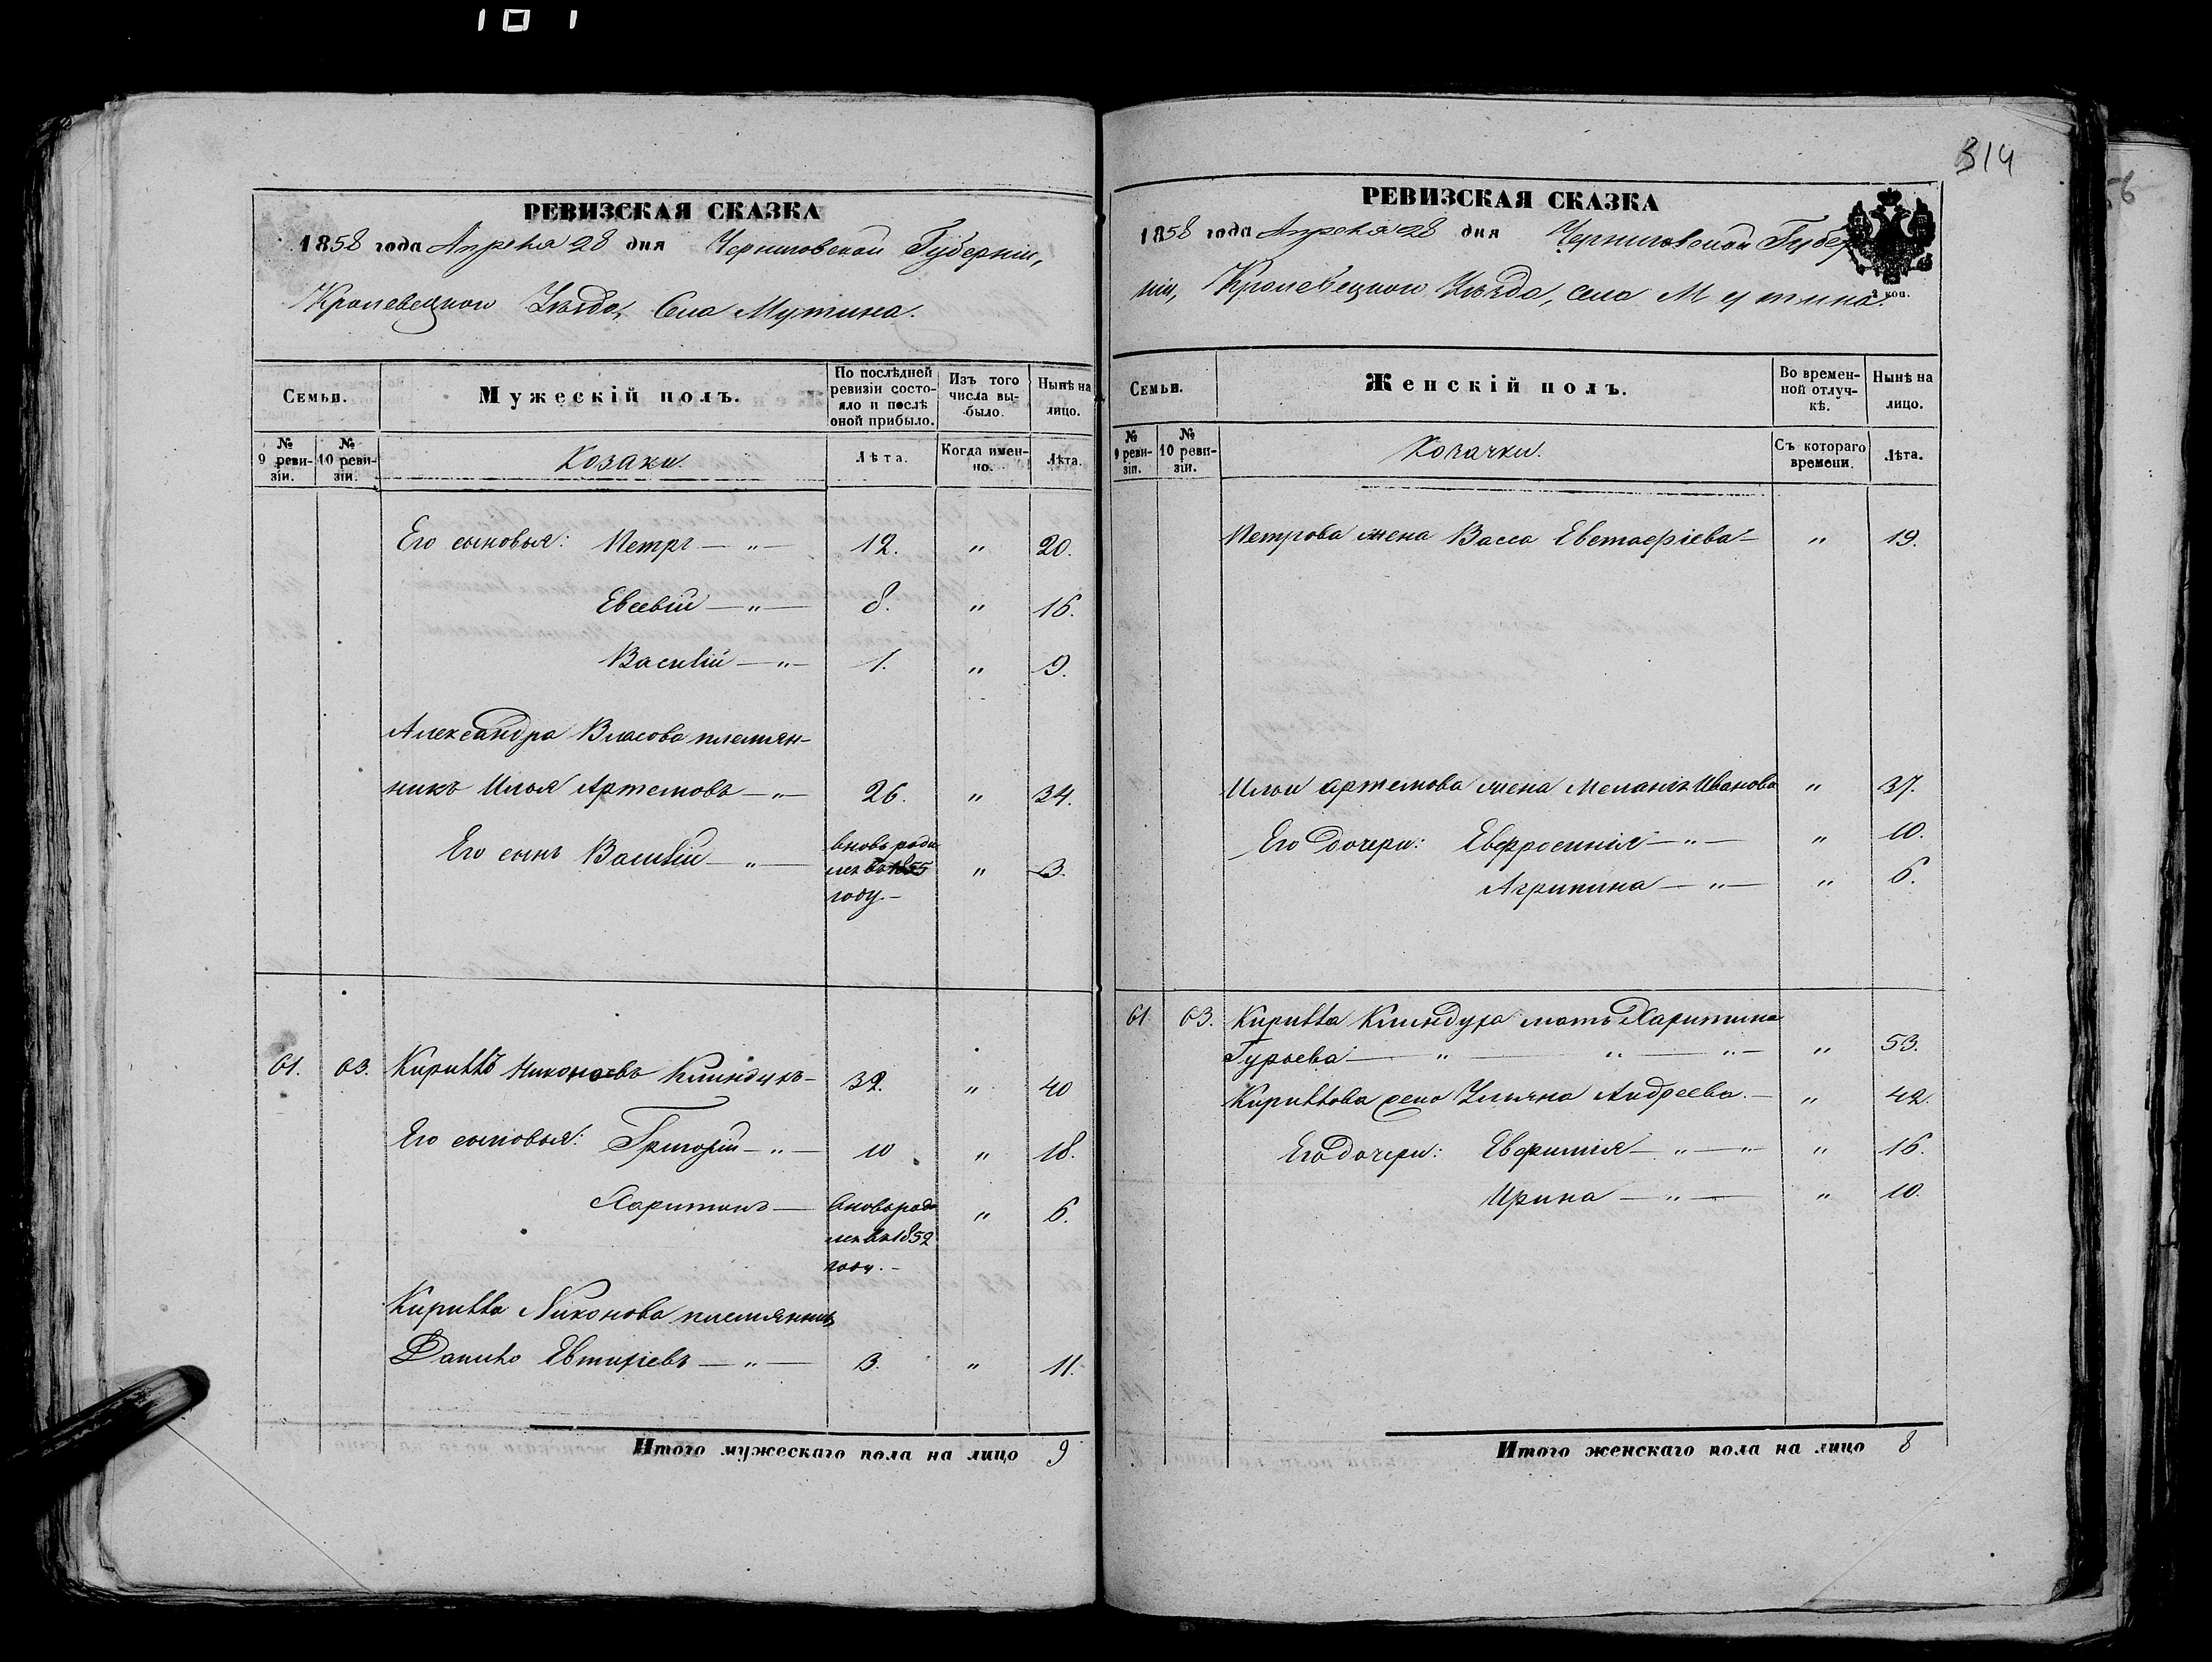 101
РЕВИЗСКАЯ СКАЗКА
1858 года Апреля 28 дня Черниговской Губерніи,
Кролевецкого Уѣзда, Села Мутина.
Семьи.
Мужескій полъ.
По послѣдней ревизіи состояло и послѣ оной прибыло.
Изъ того числа выбыло.
Нынѣ на лицо.
№ 9 ревизіи.
№ 10 ревизіи.
Козаки.
Лѣта.
Когда именно.
Лѣта.
Его сыновья: Петръ — „ — 12. „ 20.
Евсевій — „ — 8. „ 16.
Василій — „ — 1. „ 9.
Александра Власова племян-
никъ Илья Артемовъ — „ — 26. „ 34.
Его сынъ Василій — „ — вновь роди „ 3.
лся въ 1855
году. —
61. 63. Кириллъ Никоновъ Клиндухъ — 32. „ 40
Его сыновья: Григорій — „ — 10 „ 18.
Харитонъ — вновь роди „ 6.
лся въ 1852
году. —
Кирилла Никонова племянникъ
Данило Евтихіевъ — „ — 3. „ 11.
Итого мужескаго пола на лицо 9
314
РЕВИЗСКАЯ СКАЗКА
1858 года Апреля 28 дня Черниговской Губер
ніи, Кролевецкого Уѣзда, села Мутина.
2 коп.
Семьи.
Женскій полъ.
Во временной отлучкѣ.
Нынѣ на лицо.
№ 9 ревизіи.
№ 10 ревизіи.
Козачки.
Съ котораго времени.
Лѣта.
Петрова жена Васса Евстафіева — „ 19.
Ильи Артемова жена Меланія Иванова „ 37.
Его дочери: Евфросинія — „ — „ 10.
Агрипина — „ — „ 6.
61 63. Кирилла мать Харитина
Гурьева — „ — „ — „ — „ 53.
Кириллова жена Ульяна Андреева. — „ 42.
Его дочери: Евфимія — „ — „ „ 16.
Ирина — „ — „ 10.
Итого женскаго пола на лицо 8